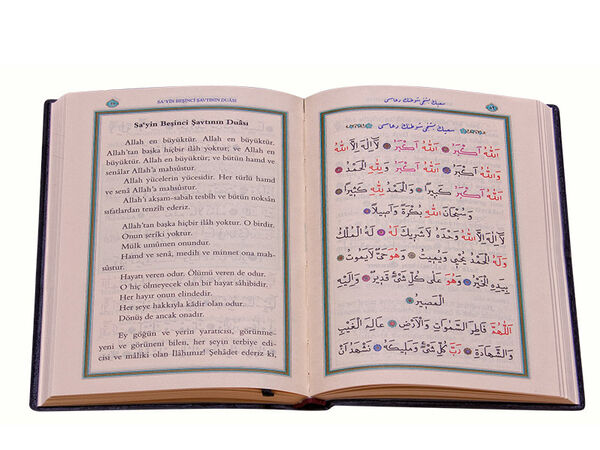 SA'YİN BEŞİNCİ ŞAVTININ DUÂSI
Sa'yin Beşinci Şavtının Duâsı
Allah en büyüktür. Allah en büyüktür.
Allah'tan başka hiçbir ilâh yoktur; ve Allah en
büyüktür. Allah en büyüktür; ve bütün hamd ve
senâlar Allah'a mahsûstur.
Allah yücelerin yücesidir. Her türlü hamd
ve senâ Allah'a mahsûstur.
Allah'ı akşam-sabah tesbih ve bütün noksân
sıfatlardan tenzîh ederiz.
Allah'tan başka hiçbir ilâh yoktur. O birdir.
Onun şerîki yoktur.
Mülk umûmen onundur.
Hamd ve senâ, medih ve minnet ona mah-
sûstur.
Hayatı veren odur. Ölümü veren de odur.
O hiç ölmeyecek olan bir hayat sâhibidir.
Her hayır onun elindedir.
Her şeye hakkıyla kâdir olan odur.
Dönüş de ancak onadır.
Ey göğün ve yerin yaratıcısı, görünme-
yeni ve görüneni bilen, her şeyin terbiye edi-
cisi ve mâliki olan İlâhımız! Şehâdet ederiz ki,
اَللّٰهُ اَكْبَرُ اَللّٰهُ اَكْبَرُ لَا اِلٰهَ اِلَّا اللّٰهُ
وَاللّٰهُ اَكْبَرُ اَللّٰهُ اَكْبَرُ وَلِلّٰهِ الْحَمْدُ
اَللّٰهُ اَكْبَرُ كَبِيرًا وَالْحَمْدُ لِلّٰهِ كَثِيرًا
وَسُبْحَانَ اللّٰهِ بُكْرَةً وَاَصِيلًا
لَا اِلٰهَ اِلَّا اللّٰهُ وَحْدَهُ لَا شَرِيكَ لَهُ لَهُ الْمُلْكُ
وَلَهُ الْحَمْدُ يُحْيِي وَيُمِيتُ وَهُوَ حَيٌّ لَا يَمُوتُ
بِيَدِهِ الْخَيْرُ وَهُوَ عَلٰى كُلِّ شَيْءٍ قَدِيرٌ وَاِلَيْهِ
الْمَصِيرُ
اَللّٰهُمَّ فَاطِرَ السَّمٰوَاتِ وَالْاَرْضِ عَالِمَ الْغَيْبِ
وَالشَّهَادَةِ رَبَّ كُلِّ شَيْءٍ وَمَلِيكَهُ نَشْهَدُ اَنْ